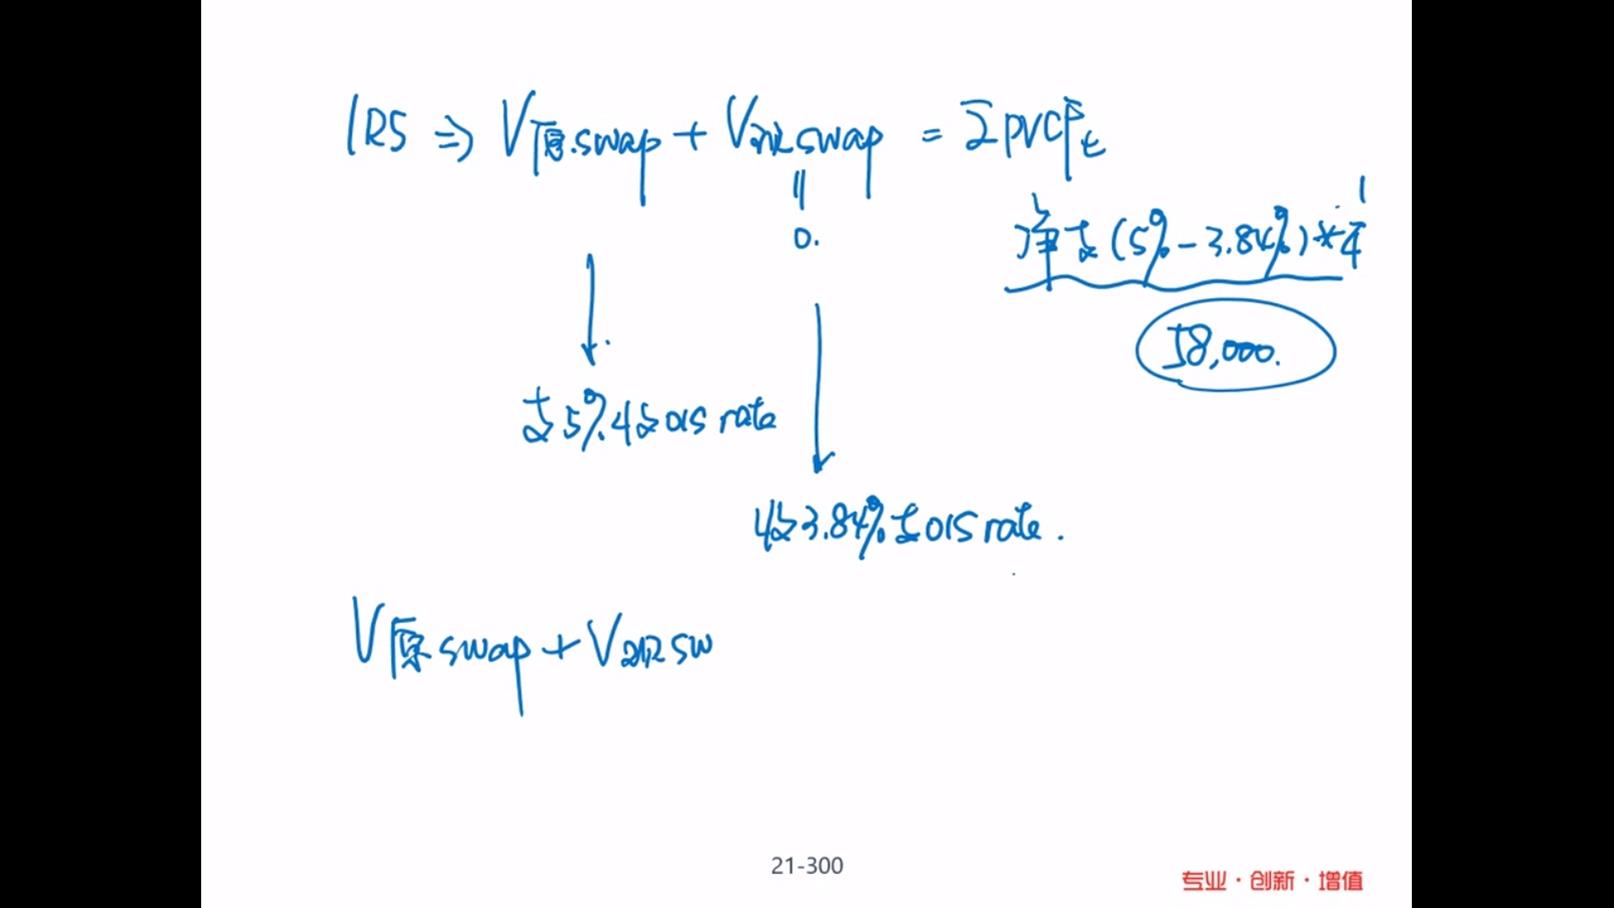 IRS ⇒ V原.swap + V对冲swap = ΣPVCFt
||
0.
净支(5%-3.84%)*1/4
58,000.
支5%.收OIS rate
收3.84%支OIS rate.
V原swap + V对冲sw
21-300
专业·创新·增值